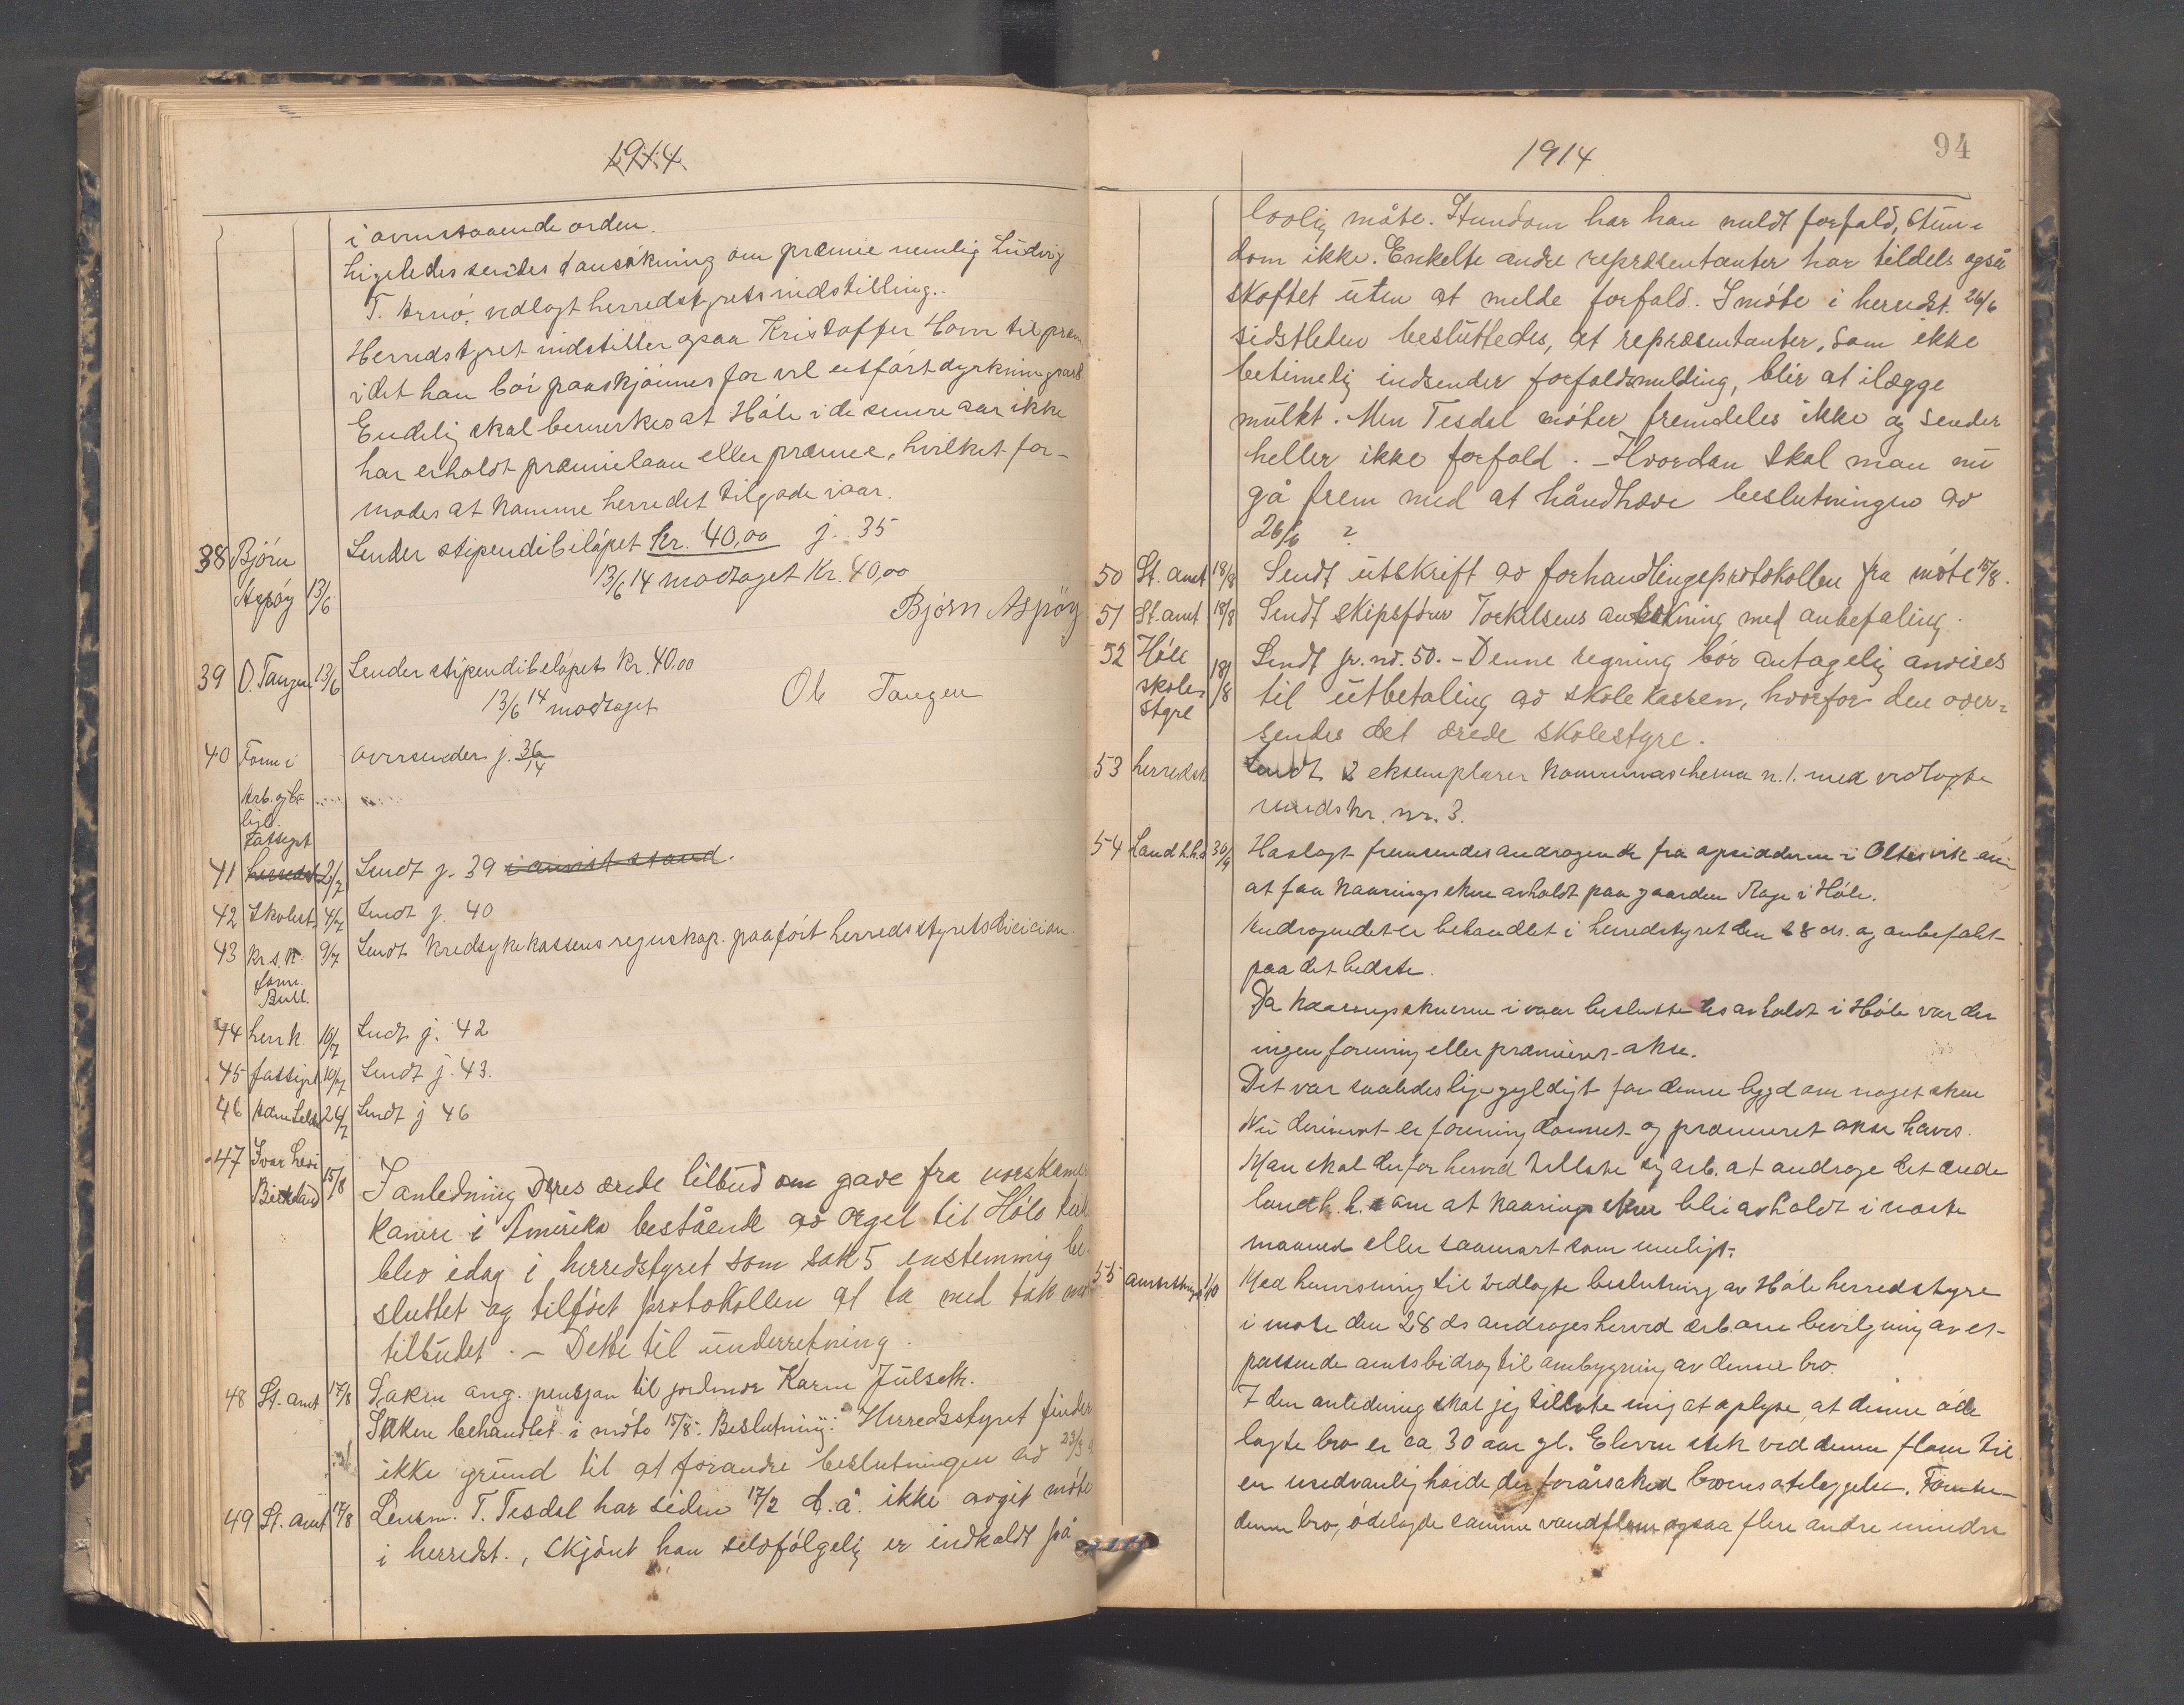 1914
i ovenstaaende orden.
Ligeledes sendes 1 ansökning om præmie nemlig Ludvig
T. Arnö, vedlagt herredstyrets indstilling.
Herredstyret indstiller ogsaa Kristoffer Hom til præm
idet han bör paaskjönnes for vel utfört dyrkningsarb
Endelig skal bemerkes at Höle i de senere aar ikke
har erholdt præmielaan eller præmie, hvilket for-
modes at komme herredet tilgode iaar.
38 Björn Sender stipendibelöpet kr. 40,00 j. 35
Aspöy 13/6 13/6 14 modtaget Kr. 40,00
Björn Aspöy
39 O. Tangen 13/6 Sender stipendibelöpet kr. 40.00
13/6 14 modtaget Ole Tangen
40 Form i oversender j. 36/14
Arb. og
Fattigst
41 herredsk 2/7 Sendt j. 39 i anvist stand.
42 Skolest 4/7 Sendt j. 40
43 kr.s.k. 9/7 Sendt kredsykekassens regnskap. paaført herredsstyrets decision
form.
Bull.
44 herr k. 10/7 Sendt j. 42
45 fattigst 10/7 Sendt j. 43.
46 24/7 Sendt j 46
47 Ivar Levi
Birkeland 15/8 I anledning Deres ærede tilbud om gave fra norskame
kanere i Amerika bestående av orgel til Höle kirk
blev idag i herredstyret som sak 5 enstemmig be-
sluttet og tilföiet protokollen at ta med tak mot
tilbudet. – Dette til underretning.
48 St. amt 17/8 Saken ang. pensjon til jordmor Karen Julseth.
Saken behandlet i möte 15/8. Beslutning: "Herredsstyret finder
ikke grund til at forandre beslutningen av 23/5
49 St. amt 17/8 Lensm. T. Tesdal har siden 17/2 d.å. ikke avgit möte
i herredst., skjönt han selvfölgelig er indkaldt på
1914
94
lovlig måte. Stundom har han meldt forfald, stun-
dom ikke. Enkelte andre repræsentanter har tildels også
skoftet uten at melde forfald. I möte i herredst. 26/6
sidstleden besluttedes, at repræsentanter, som ikke
betimelig indsender forfaldsmelding, blir at ilægge
mulkt. Men Tesdal möter fremdeles ikke og sender
heller ikke forfald. – Hvordan skal man nu
gå frem med at håndhæve beslutningen av
26/6 ?
50 St. amt 18/8 Sendt utskrift av forhandlingsprotokollen fra möte 15/8.
51 St. amt 18/8 Sendt skipsförer Torkelsens ansökning med anbefaling.
52 Höle 18/8 Sendt jr. no. 50. – Denne regning bör antagelig anvises
skole- til utbetaling av skolekassen, hvorfor den over-
styre sendes det ærede skolestyre.
53 herredsk Sendt 2 eksemplarer kommuneschema n. 1. med vedlagte
rundskr. nr. 3.
54 Landh.h.s 30/9 Hoslagt fremsendes andragende fra opsidderne i Oltesvik om
at faa kaaringsskue avholdt paa gaarden Rage i Höle.
Andragendet er behandlet i herredstyret den 28 ds. og anbefalt
paa det bedste.
Da kaaringsskuerne i vaar besluttedes avholdt i Höle var der
ingen forening eller præmieret okse.
Det var saaledes ligegyldigt for denne bygd om noget skue
Nu derimot er forening dannet og præmieret okse haves.
Man skal derfor herved tillate sig ærb. at androge det ærede
landh. h. s om at kaaringsskue blir avholdt i næste
maaned eller saasnart som muligt.
55 amtsting 1/10 Med henvisning til vedlagte beslutning av Höle herredstyre
i möte den 28 ds androges herved ærb. om bevilgning av et
passende amtsbidrag til ombygning av denne bro.
I den anledning skal jeg tillate mig at oplyse, at denne öde
lagte bro er ca 30 aar gl. Elven stek ved denne flom til
en usedvanlig höide der forårsaked broens ödelæggelse. Foruten
denne bro, ödelagde samme vandflom ogsaa flere andre mindre